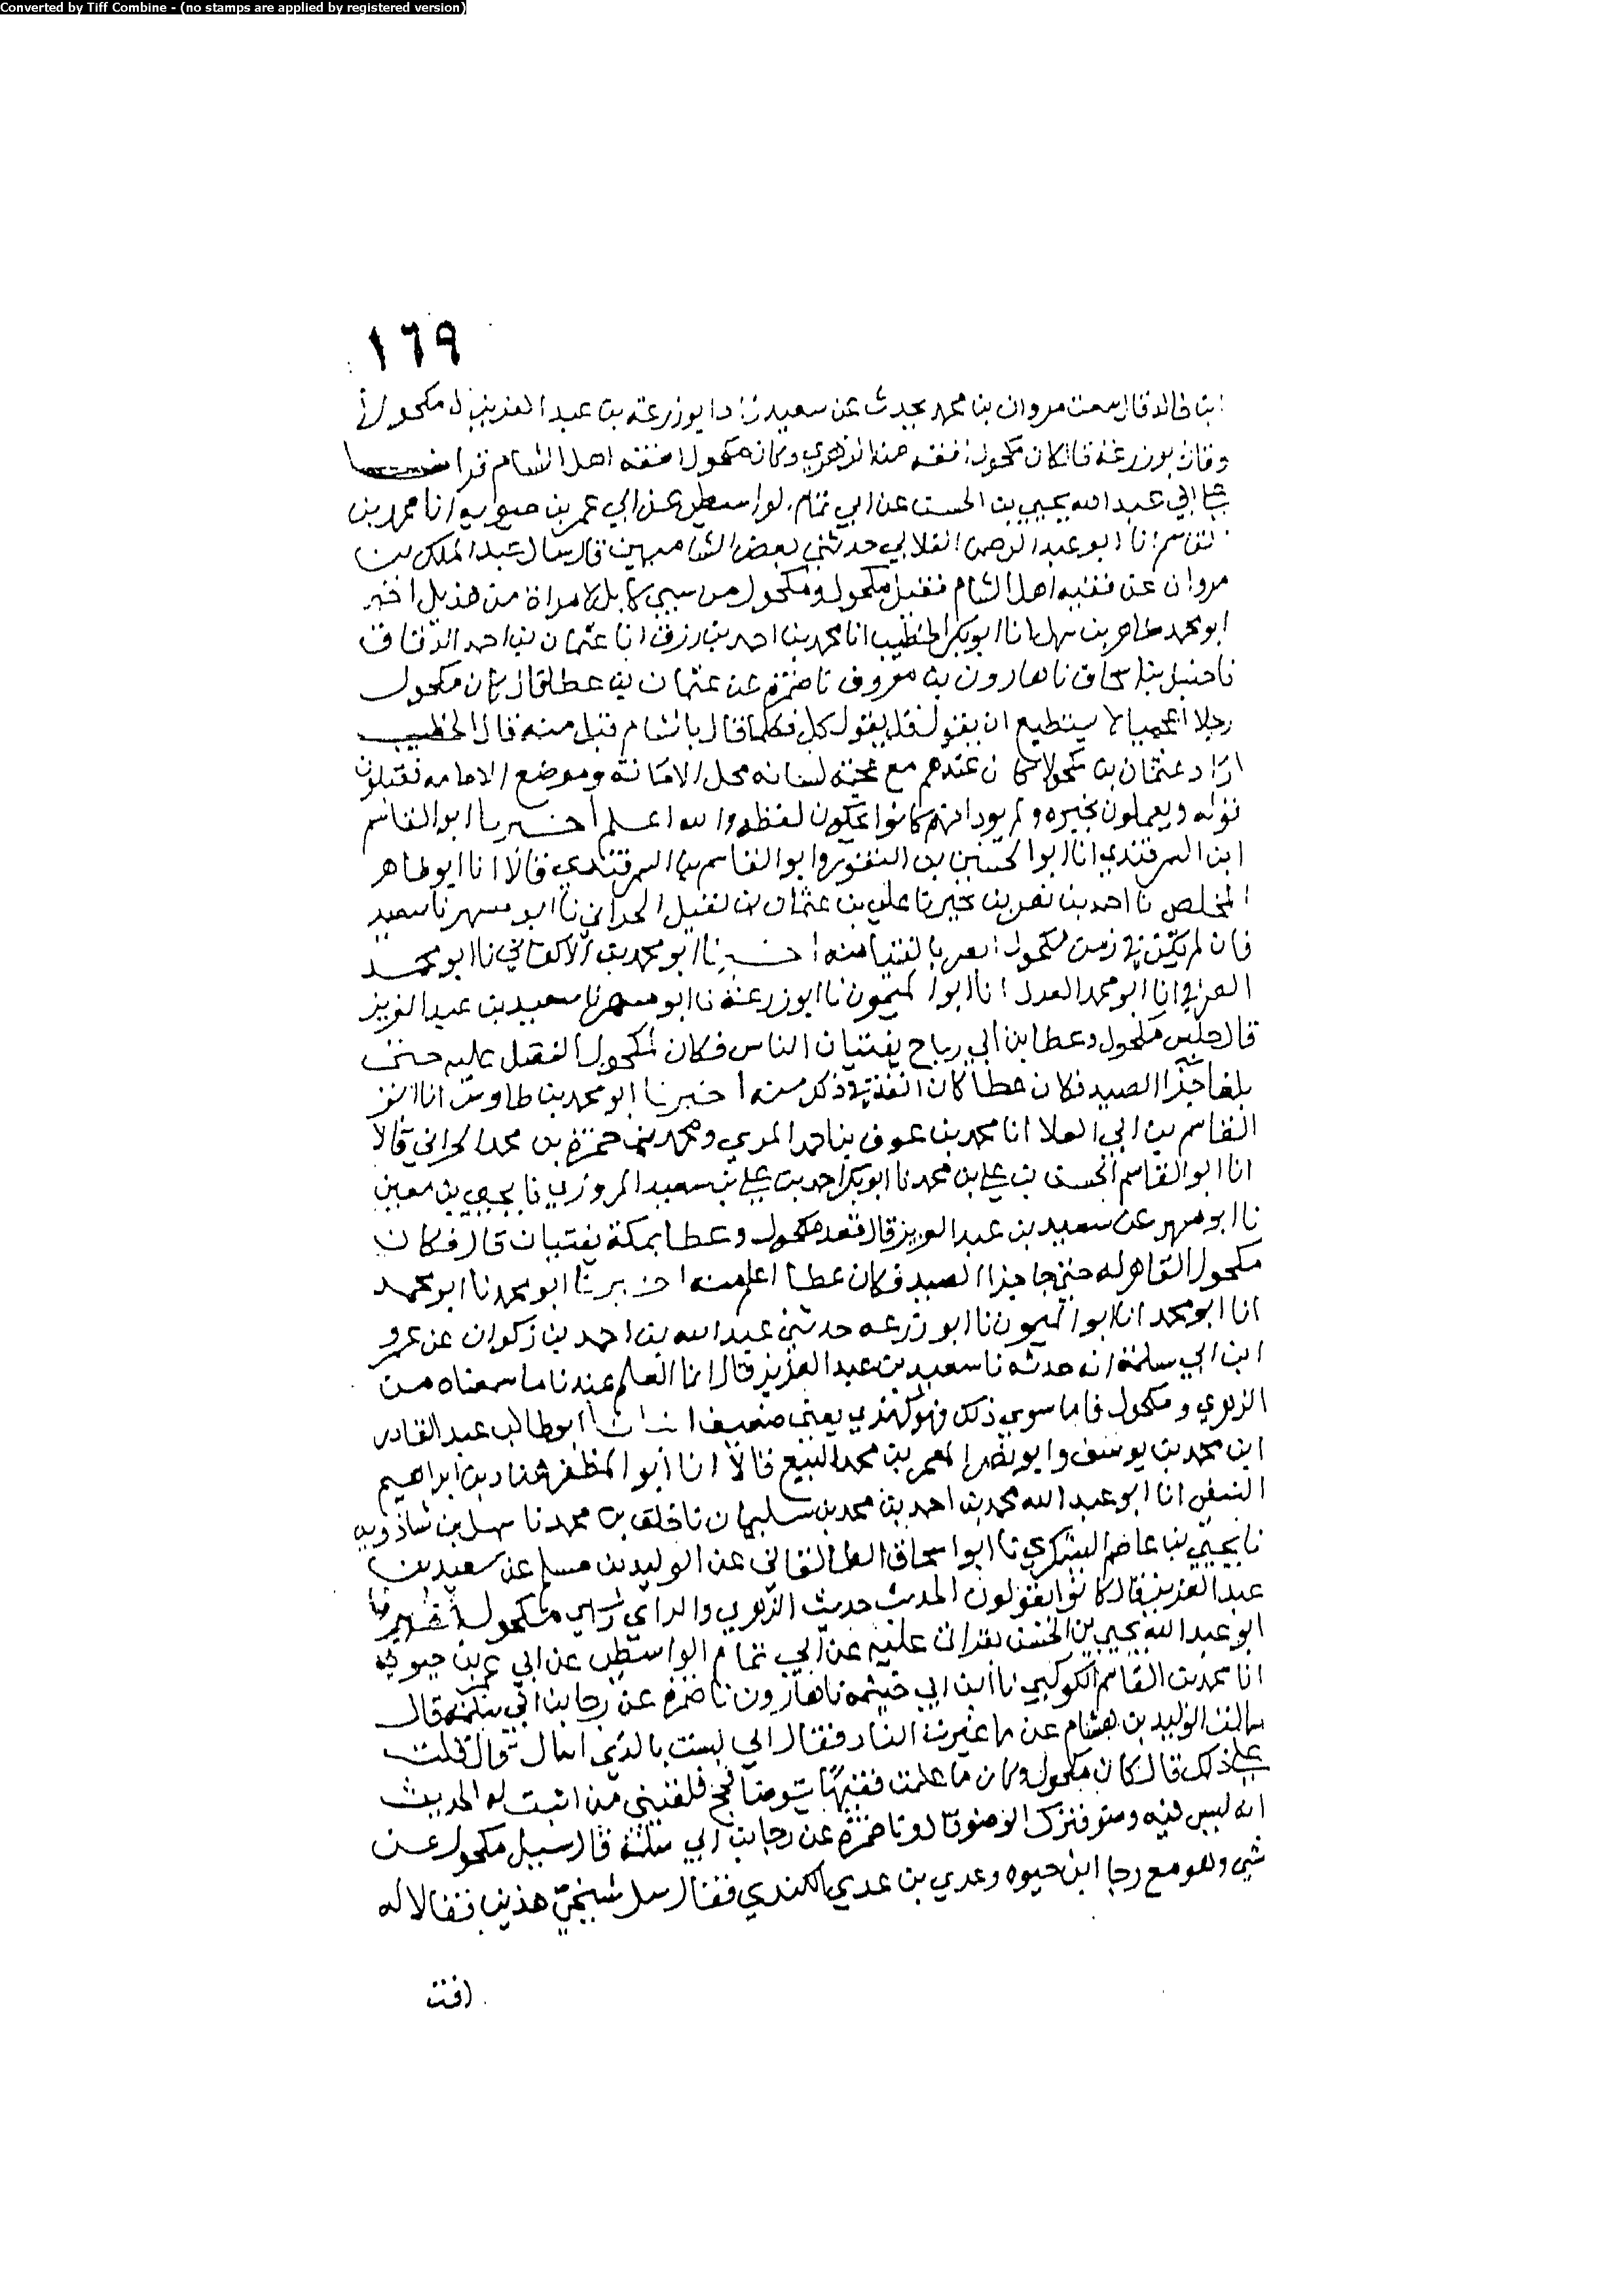 Converted by Tiff Combine - (no stamps are applied by registered version)
١٦٩
ابن خالد قال سمعت مروان بن محمد يحدث عن سعيد زاد ابو زرعة بن عبد العزيز مكحول
وقال بو زرعة قال كان مكحول افقه من الزهري وكان مكحول افقه اهل الشام قرات
علي ابي عبد الله يحيي بن الحسن عن ابي تمام الواسطي عن ابي عمر بن حيويه انا محمد بن
القاسم نا ابو عبد الرحمن الغلابي حدثني بعض الشاميين قال سال عبد الملك بن
مروان عن فقيه اهل الشام فقيل مكحول ومكحول من سبي كابل لامراة من هذيل اخبر
ابو محمد طاهر بن سهل انا ابو بكر الخطيب انا محمد بن احمد بن رزق انا عثمان بن احمد الدقاق
نا حنبل بن اسحاق نا هارون بن معروف نا ضمرة عن عثمان بن عطا قال كان مكحول
رجلا اعجميا لا يستطيع ان يقول قل يقول كل فكلما قال بالشام قبل منه قال الخطيب
اراد عثمان بن مكحولا كان عندهم مع عجمة لسانه محل الامانة وموضع الامامه فقبلون
قوله ويعملون بخبره ولم يود انهم كانوا يحكون لفظه والله اعلم اخبرنا ابو القاسم
ابن السمرقندي انا ابو الحسين بن النقور وابو القاسم بن السمرقندي قالا انا ابو طاهر
المخلص نا احمد بن نصر بن بحير نا علي بن عثمان بن نفيل الحراني نا ابو مسهر نا سعيد
قال لم يكن في زمن مكحول ابصر بالفتيا منه اخبرنا ابو محمد بن الاكفاني نا ابو محمد
الصوفي انا ابو محمد العدل انا ابو الميمون نا ابو زرعة نا ابو مسهر نا سعيد بن عبد العزيز
قال جلس مكحول وعطا بن ابي رباح يفتيان الناس فكان لمكحول الفضل عليه حتي
بلغا جزا الصيد فكان عطا كان انفذ في ذكر منه اخبرنا ابو محمد بن طاوس انا ابو
القاسم بن ابي العلا انا محمد بن عوف بن احمد المري ومحمد بن حمزة بن محمد الحراني قالا
انا ابو القاسم الحسن بن علي بن محمد نا ابو بكر احمد بن علي بن سعيد المروزي نا يحيي بن معين
نا ابو مسهر عن سعيد بن عبد العزيز قال قعد مكحول وعطا بمكة يفتيان قال فكان
مكحول القاهر له حتي جا جزا الصيد فكان عطا اعلم منه اخبرنا ابو محمد نا ابو محمد
انا ابو محمد انا ابو الميمون نا ابو زرعه حدثني عبد الله بن احمد بن ذكوان عن عمرو
ابن ابي سلمة انه حدثه نا سعيد بن عبد العزيز قال انما العلم عندنا ما سمعناه من
الزهري ومكحول فاما سوي ذلك فهو كهذي يعني ضعيف انبانا ابو طالب عبد القادر
ابن محمد بن يوسف وابو نصر المعمر بن محمد البيع قالا انا ابو المظفر هناد بن ابراهيم
النسفي انا ابو عبد الله محمد بن احمد بن محمد بن سليمان نا خلف بن محمد نا سهل بن شاذويه
نا يحيي بن عاصم اليشكري نا ابو اسحاق الطالقاني عن الوليد بن مسلم عن سعيد بن
عبد العزيز قال كانوا يقولون الحديث حديث الزهري والراي راي مكحول اخبرنا
ابو عبد الله يحيي بن الحسن بقراتي عليه عن ابي تمام الواسطي عن ابي عمر بن حيويه
انا محمد بن القاسم الكوكبي نا ابن ابي خيثمه نا هارون نا ضمرة عن رجا بن ابي سلمة قال
سالت الوليد بن هشام عن ما غيرت النار فقال اني لست بالذي اسال قال قلت
علي ذلك قال كان مكحول وكان ما علمت فقيها يتوضا فحج فلقيني من اثبت له الحديث
انه ليس فيه وضو فترك الوضو قال ونا ضمرة عن رجا بن ابي سلمة قال سيل مكحول عن
شي وهو مع رجا ابن حيوه وعدي بن عدي الكندي فقال سل شيخي هذين فقالا له
افت